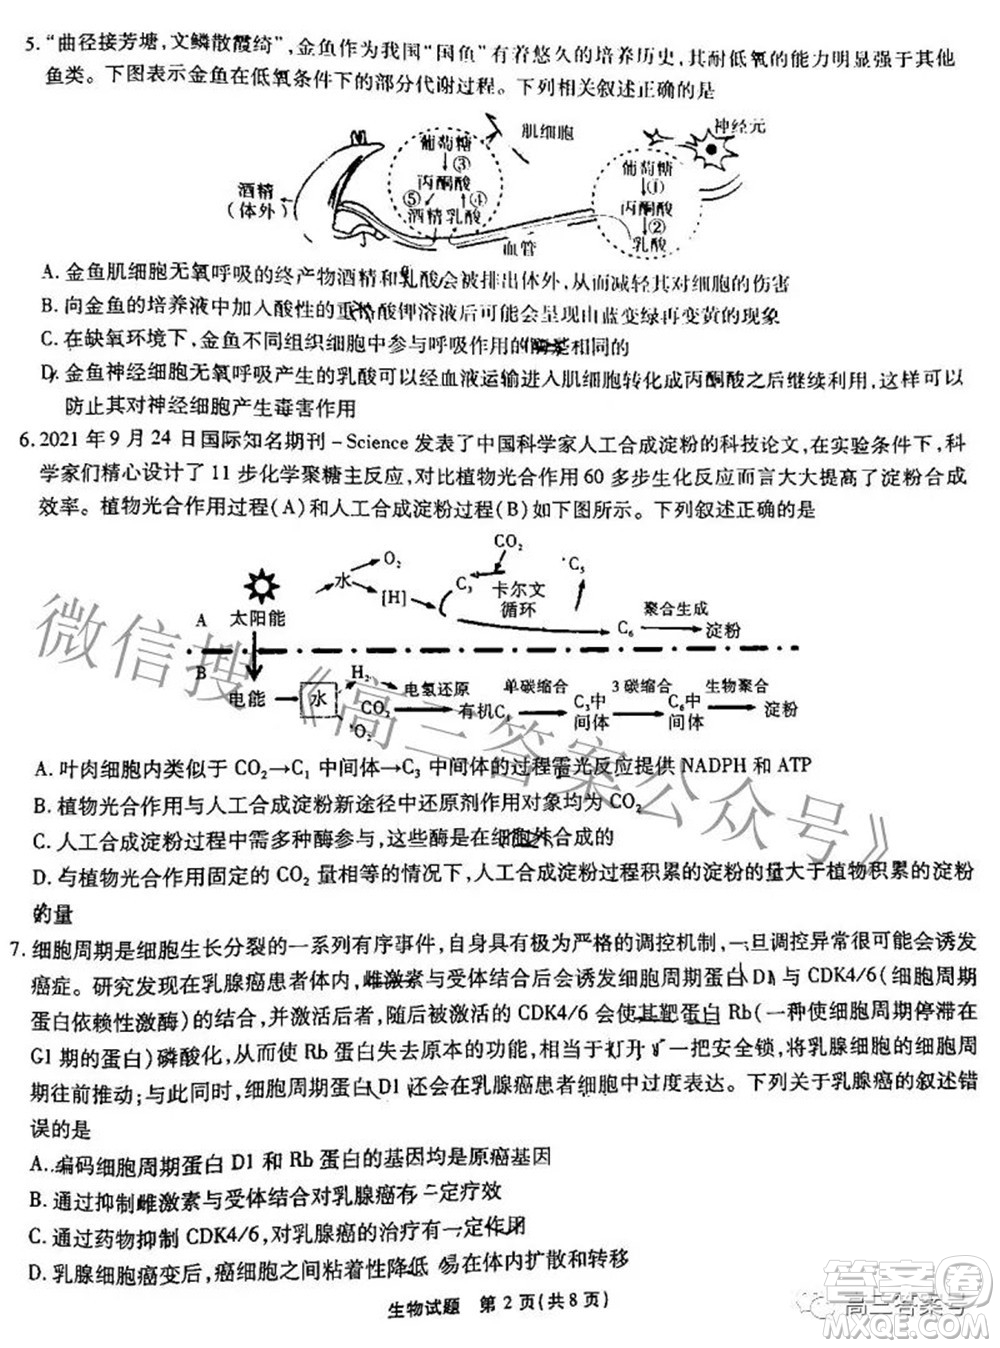 5. “曲径接芳塘，文鳞散霞绮”，金鱼作为我国“国鱼”有着悠久的培养历史，其耐低氧的能力明显强于其他
鱼类。下图表示金鱼在低氧条件下的部分代谢过程。下列相关叙述正确的是
肌细胞
神经元
葡萄糖
③
丙酮酸
⑤ ④
酒精 乳酸
酒精
(体外)
血管
葡萄糖
①
丙酮酸
②
乳酸
A. 金鱼肌细胞无氧呼吸的终产物酒精和乳酸会被排出体外，从而减轻其对细胞的伤害
B. 向金鱼的培养液中加入酸性的重铬酸钾溶液后可能会呈现由蓝变绿再变黄的现象
C. 在缺氧环境下，金鱼不同组织细胞中参与呼吸作用的酶是相同的
D. 金鱼神经细胞无氧呼吸产生的乳酸可以经血液运输进入肌细胞转化成丙酮酸之后继续利用，这样可以
防止其对神经细胞产生毒害作用
6. 2021年9月24日国际知名期刊-Science发表了中国科学家人工合成淀粉的科技论文，在实验条件下，科
学家们精心设计了11步化学聚糖主反应，对比植物光合作用60多步生化反应而言大大提高了淀粉合成
效率。植物光合作用过程(A)和人工合成淀粉过程(B)如下图所示。下列叙述正确的是
太阳能
A
B
水
O2
[H]
CO2
C3
卡尔文
循环
C5
C6
聚合生成
淀粉
电能
水
H2
CO2
O2
电氢还原
有机C1
单碳缩合
C3中
间体
3碳缩合
C6中
间体
生物聚合
淀粉
A. 叶肉细胞内类似于CO2→C1中间体→C3中间体的过程需光反应提供NADPH和ATP
B. 植物光合作用与人工合成淀粉新途径中还原剂作用对象均为CO2
C. 人工合成淀粉过程中需多种酶参与，这些酶是在细胞外合成的
D. 与植物光合作用固定的CO2量相等的情况下，人工合成淀粉过程积累的淀粉的量大于植物积累的淀粉
的量
7. 细胞周期是细胞生长分裂的一系列有序事件，自身具有极为严格的调控机制，一旦调控异常很易会诱发
癌症。研究发现在乳腺癌患者体内，雌激素与受体结合后会诱发细胞周期蛋白D1与CDK4/6(细胞周期
蛋白依赖性激酶)的结合，并激活后者，随后被激活的CDK4/6会使其靶蛋白Rb(一种使细胞周期停滞在
G1期的蛋白)磷酸化，从而使Rb蛋白失去原本的功能，相当于打开了一把安全锁，将乳腺细胞的细胞周
期往前推动；与此同时，细胞周期蛋白D1还会在乳腺癌患者细胞中过度表达。下列关于乳腺癌的叙述错
误的是
A. 编码细胞周期蛋白D1和Rb蛋白的基因均是原癌基因
B. 通过抑制雌激素与受体结合对乳腺癌有一定疗效
C. 通过药物抑制CDK4/6，对乳腺癌的治疗有一定作用
D. 乳腺细胞癌变后，癌细胞之间粘着性降低，易在体内扩散和转移
生物试题 第2页(共8页)
微信搜《高三答案公众号》
高三答案号
答案卷
MXQE.COM